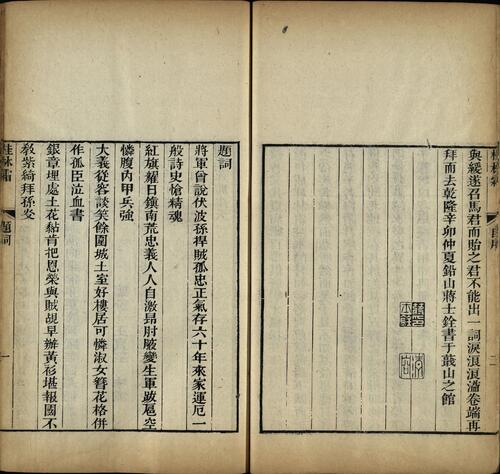 與緩遂召馬君而貽之君不能出一詞淚浪浪溢卷端再
拜而去乾隆辛卯仲夏鉛山蔣士銓書于蕺山之館
二
題詞
將軍曾說伏波孫捍賊孤忠正氣存六十年來家運厄一
般詩史愴精魂
紅旗耀日鎮南荒忠義人人自激昂肘腋變生軍跋扈空
憐腹內甲兵強
大義從容談笑餘圍城土室好樓居可憐淑女簪花格併
作孤臣泣血書
銀章埋處土花黏肯把恩榮與賊覘早辦黃衫堪報國不
教紫綺拜孫炎
桂林霜
題詞
一